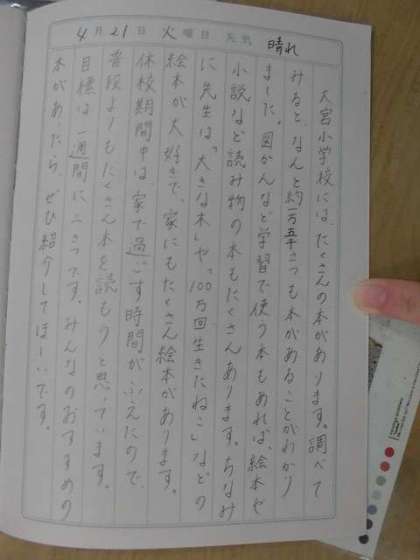 4月21日 火曜日 天気 晴れ
大宮小学校には、たくさんの本があります。調べて
みると、なんと約一万五千さつも本があることがわかり
ました。図かんなど学習で使う本もあれば、絵本や
小説など読み物の本もたくさんあります。ちなみ
に先生は、「大きな木」や、「100万回生きたねこ」などの
絵本が大好きで、家にもたくさん絵本があります。
休校期間中は家で過ごす時間がふえたので、
普段よりもたくさん本を読もうと思っています。
目標は一週間に二さつです。みんなのおすすめの
本があったら、ぜひ紹介してほしいです。